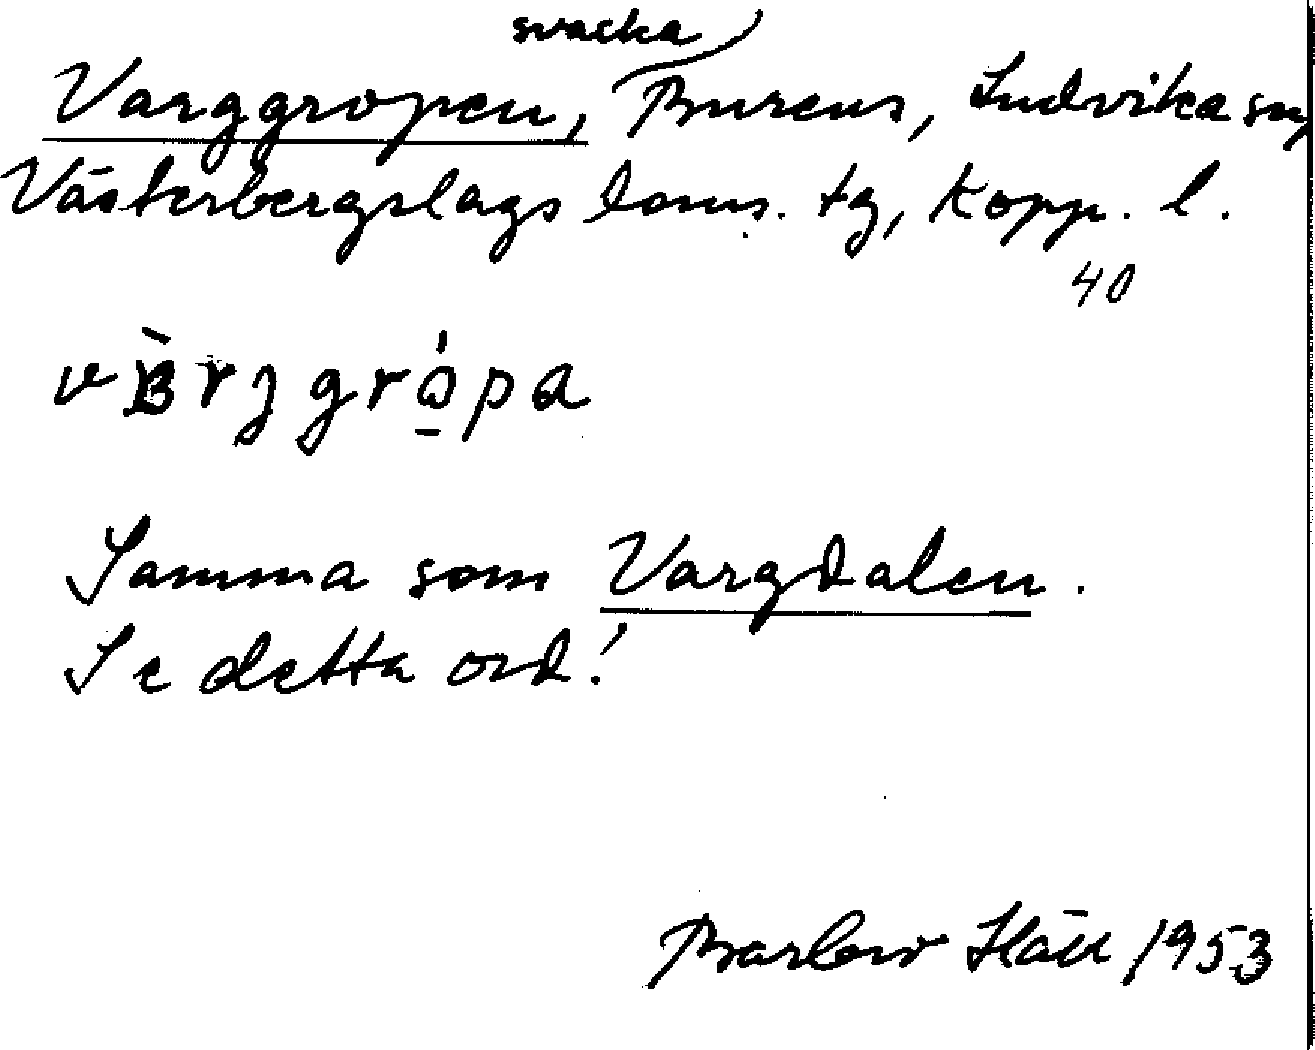 svacka
Varggropen, Burens, Ludvika sn,
Västerbergslags doms. tg, Kopp. l.
40
Samma som Vargdalen.
Se detta ord!
1953